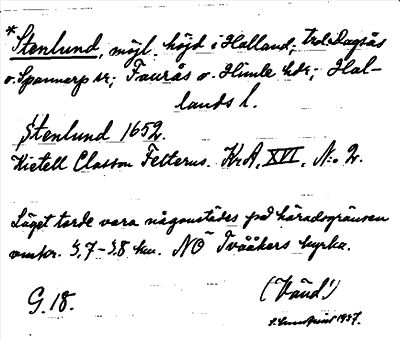 *Stenlund, möjl. höjd i Halland; trol. Dagsås
o. Spannarp sr; Faurås o. Himle hdr; Hal-
lands l.
Stenlund 1652.
Kietell Classon Felterus. KrA, XVI, N:o 2.
Läget torde vara någonstädes på häradsgränsen
omkr. 3,7-3,8 km. NÖ Tvååkers kyrka.
G. 18.
(Vänd!)
1937.